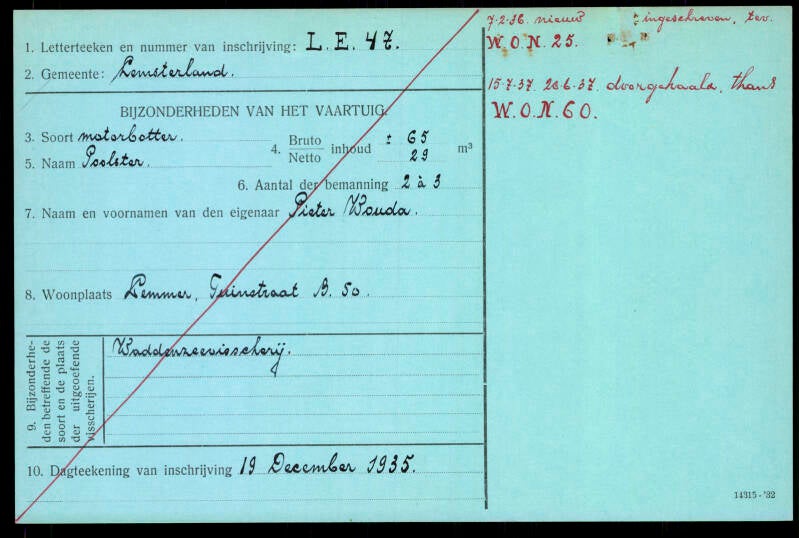 1. Letterteeken en nummer van inschrijving: L.E. 47.
2. Gemeente: Lemsterland.
BIJZONDERHEDEN VAN HET VAARTUIG.
3. Soort motorbotter.
4. Bruto Netto inhoud ± 65 29 m³
5. Naam Poolster.
6. Aantal der bemanning 2 à 3
7. Naam en voornamen van den eigenaar Pieter Wouda.
8. Woonplaats Lemmer, Tuinstraat B. 50.
9. Bijzonderhe-
den betreffende de
soort en de plaats
der uitgeoefende
visscherijen.
Waddenzeevisscherij.
10. Dagteekening van inschrijving 19 December 1935.
7-2-36. nieuw ingeschreven, tev.
W.O.N. 25.
15-7-37. 26-6-37. doorgehaald, thans
W.O.N. 60.
14315-'32